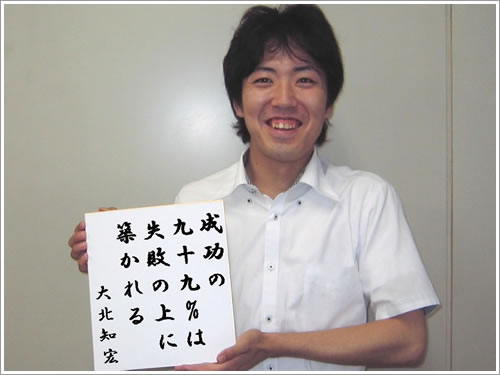 成功の
九十九%は
失敗の上に
築かれる
大北知宏